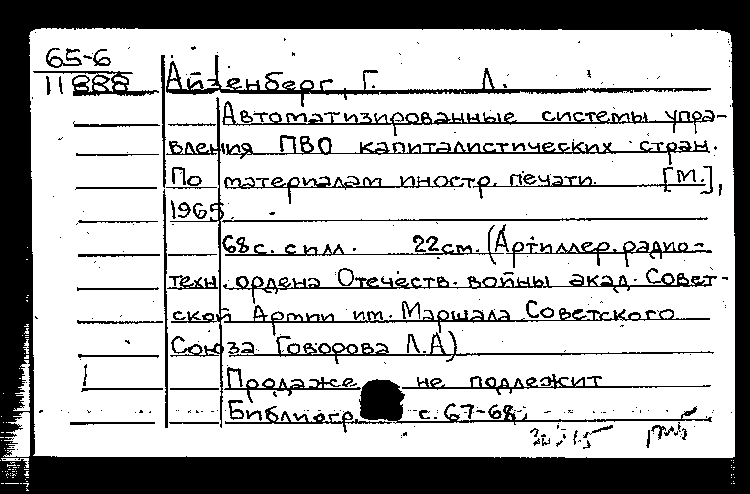 65-6
11888
Айзенберг, Г. Л.
Автоматизированные системы упра-
вления ПВО капиталистических стран.
По материалам иностр. печати. [М.],
1965.
68 с. с илл. 22 см. (Артиллер. радио-
техн. ордена Отечеств. войны акад. Совет-
ской Армии им. Маршала Советского
Союза Говорова Л.А)
Продаже не подлежит
Библиогр. с. 67-68.